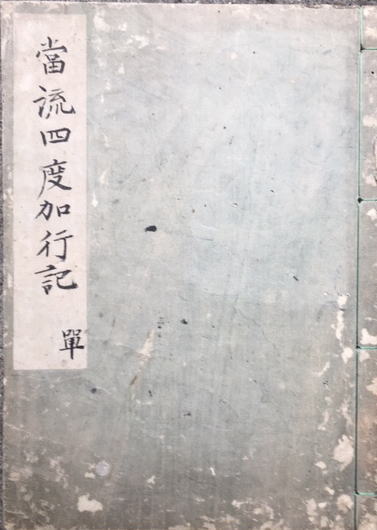 當流四度加行記
單